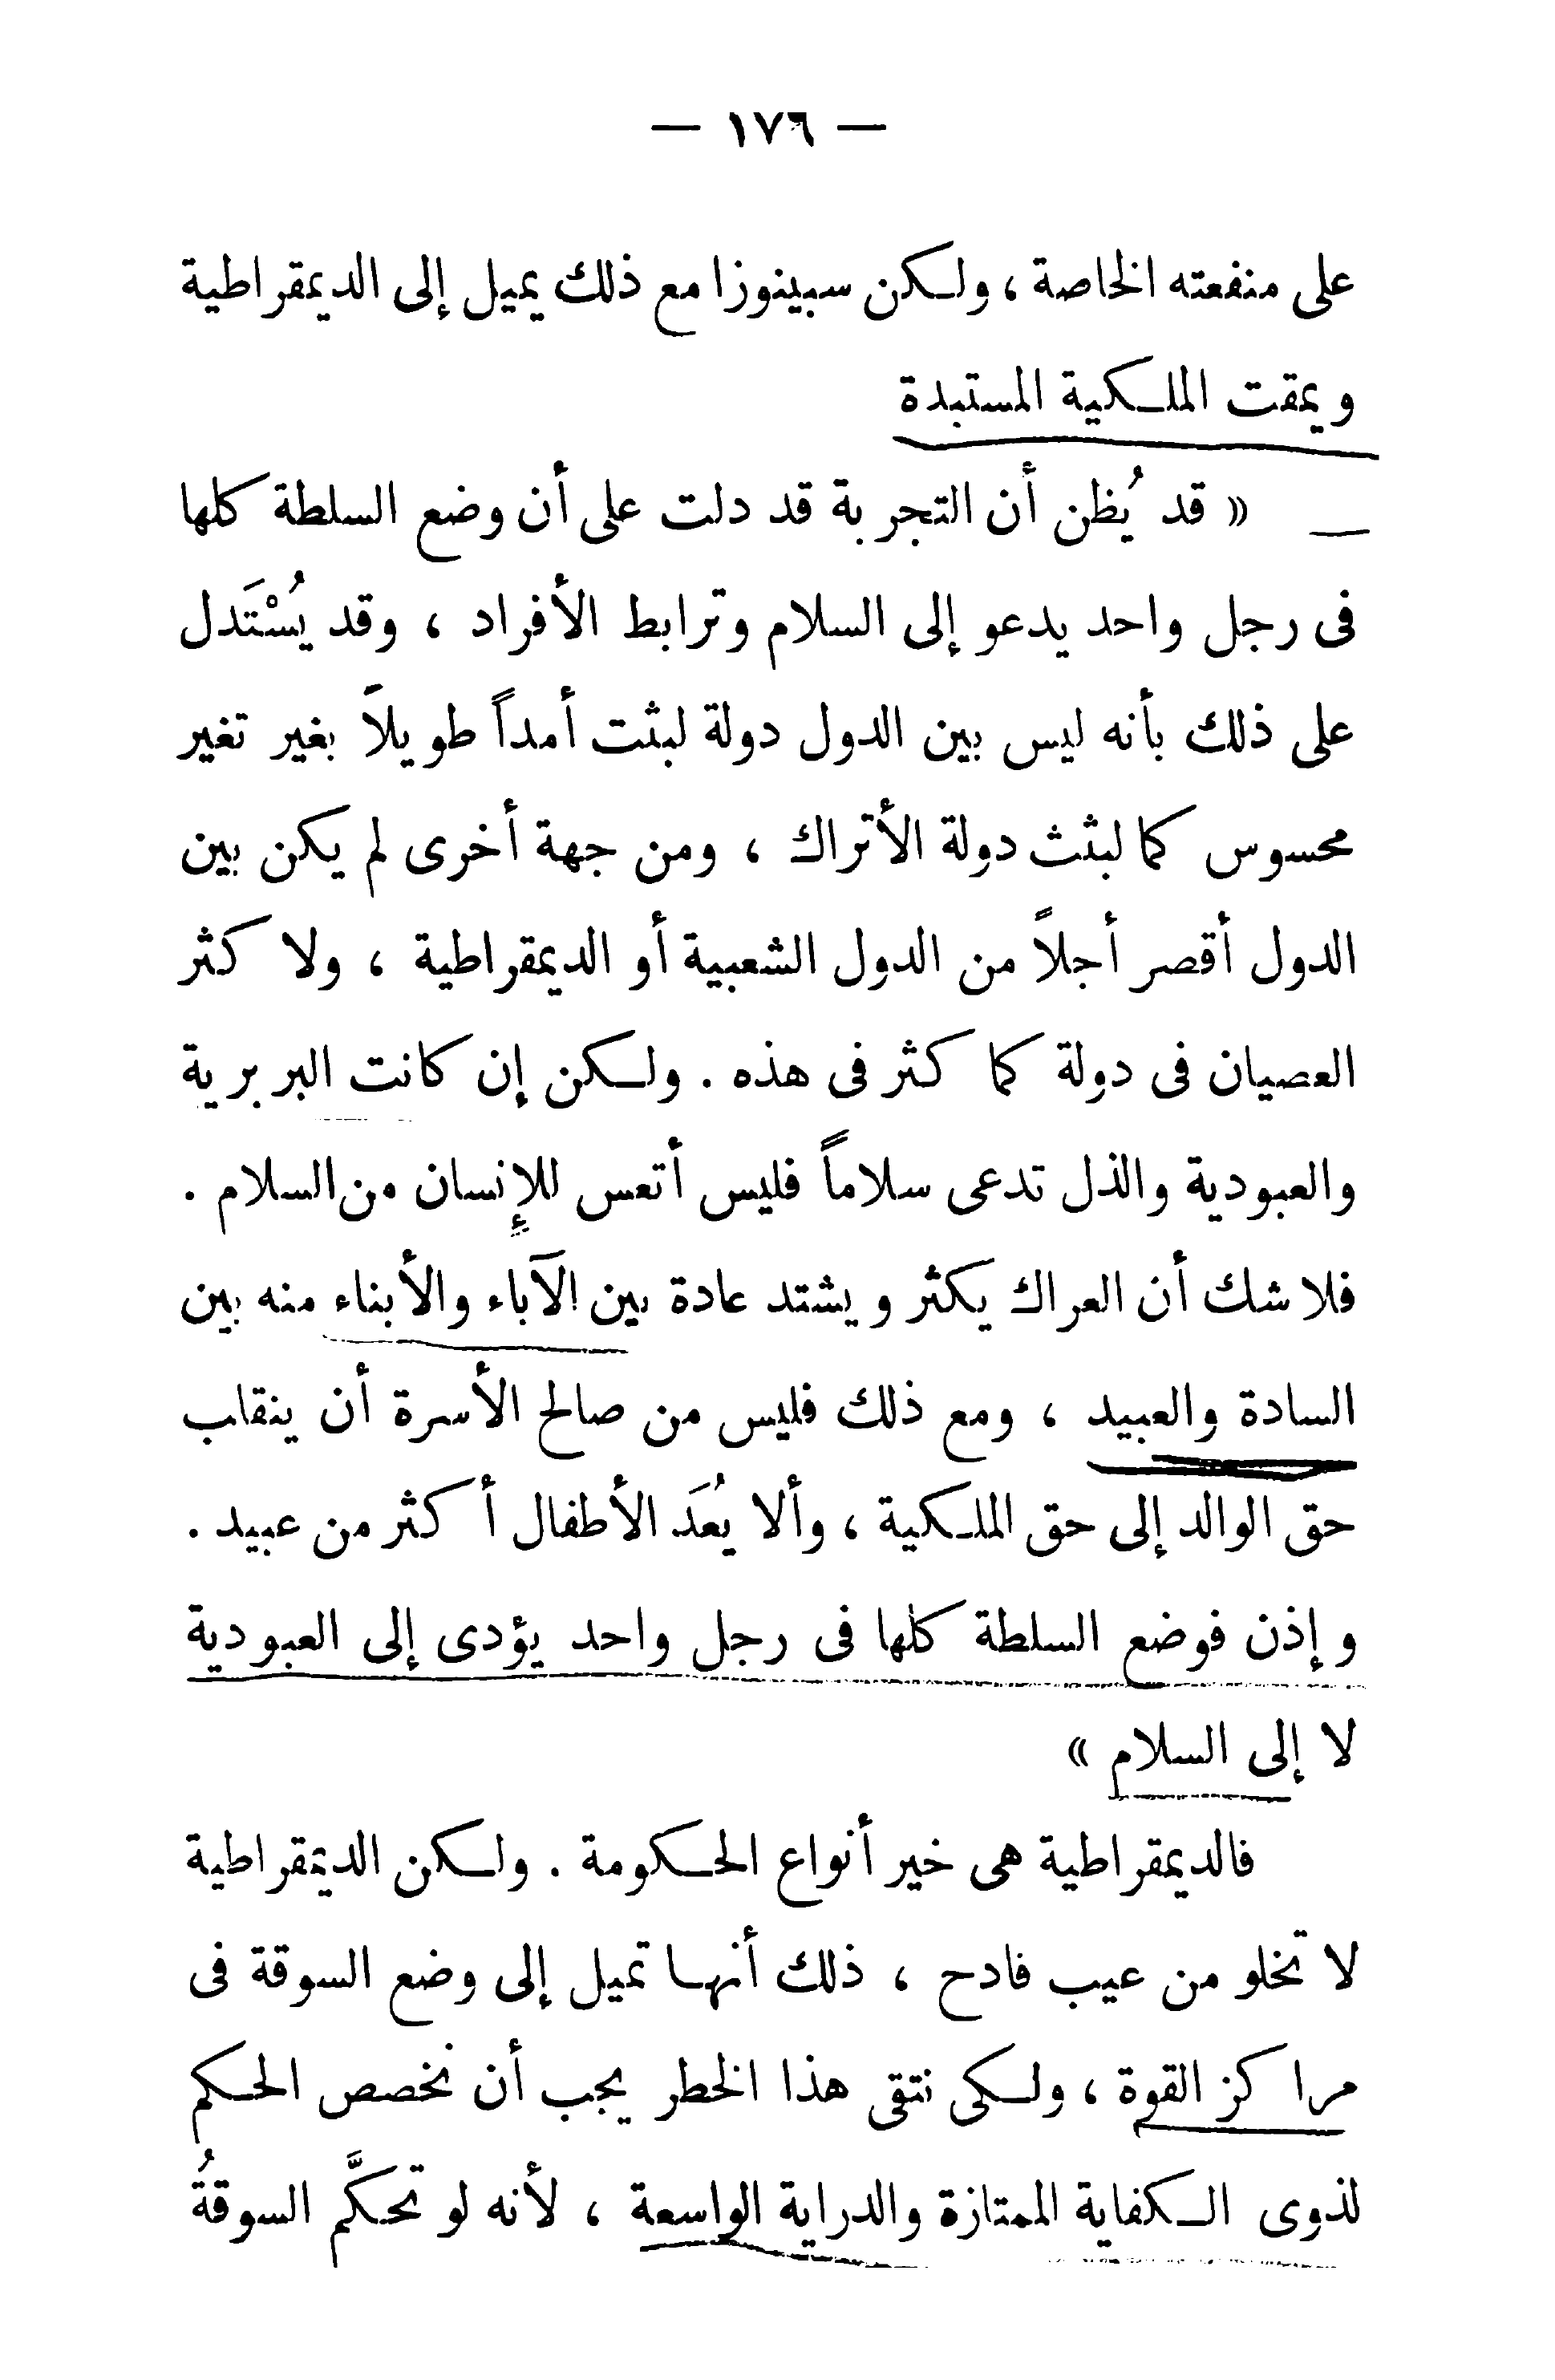 — ١٧٦ —
على منفعته الخاصة ، ولكن سبينوزا مع ذلك يميل إلى الديمقراطية
ويمقت الملكية المستبدة
« قد يُظن أن التجربة قد دلت على أن وضع السلطة كلها
فى رجل واحد يدعو إلى السلام وترابط الأفراد ، وقد يُسْتَدل
على ذلك بأنه ليس بين الدول دولة لبثت أمداً طويلاً بغير تغير
محسوس كما لبثث دولة الأتراك ، ومن جهة أخرى لم يكن بين
الدول أقصر أجلاً من الدول الشعبية أو الديمقراطية ، ولا كثر
العصيان فى دولة كما كثر فى هذه . ولكن إن كانت البربرية
والعبودية والذل تدعى سلاماً فليس أتعس للإنسان من السلام .
فلا شك أن العراك يكثر ويشتد عادة بين الآباء والأبناء منه بين
السادة والعبيد ، ومع ذلك فليس من صالح الأسرة أن ينقلب
حق الوالد إلى حق الملكية ، وألا يُعَد الأطفال أكثر من عبيد .
وإذن فوضع السلطة كلها فى رجل واحد يؤدى إلى العبودية
لا إلى السلام »
فالديمقراطية هى خير أنواع الحكومة . ولكن الديمقراطية
لا تخلو من عيب فادح ، ذلك أنها تميل إلى وضع السوقة فى
مراكز القوة ، ولكى نتقى هذا الخطر يجب أن نخصص الحكم
لذوى الكفاية الممتازة والدراية الواسعة ، لأنه لو تحكَّم السوقةُ